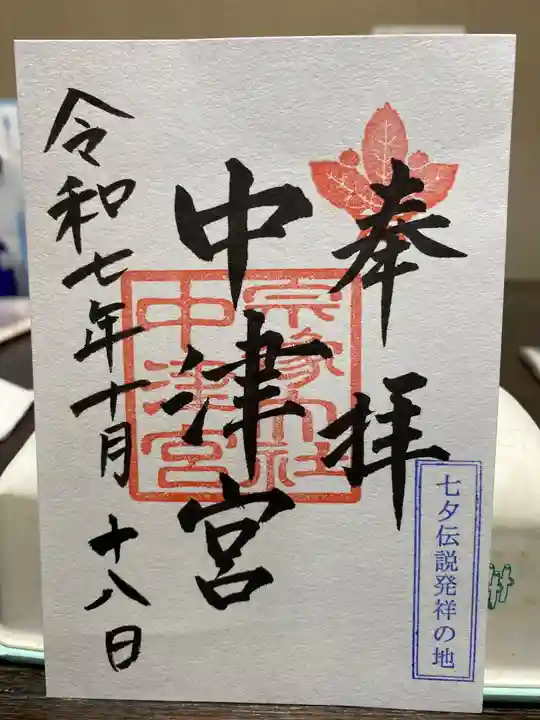 奉拝
宗像大社
中津宮
中津宮
令和七年十月十八日
七夕伝説発祥の地